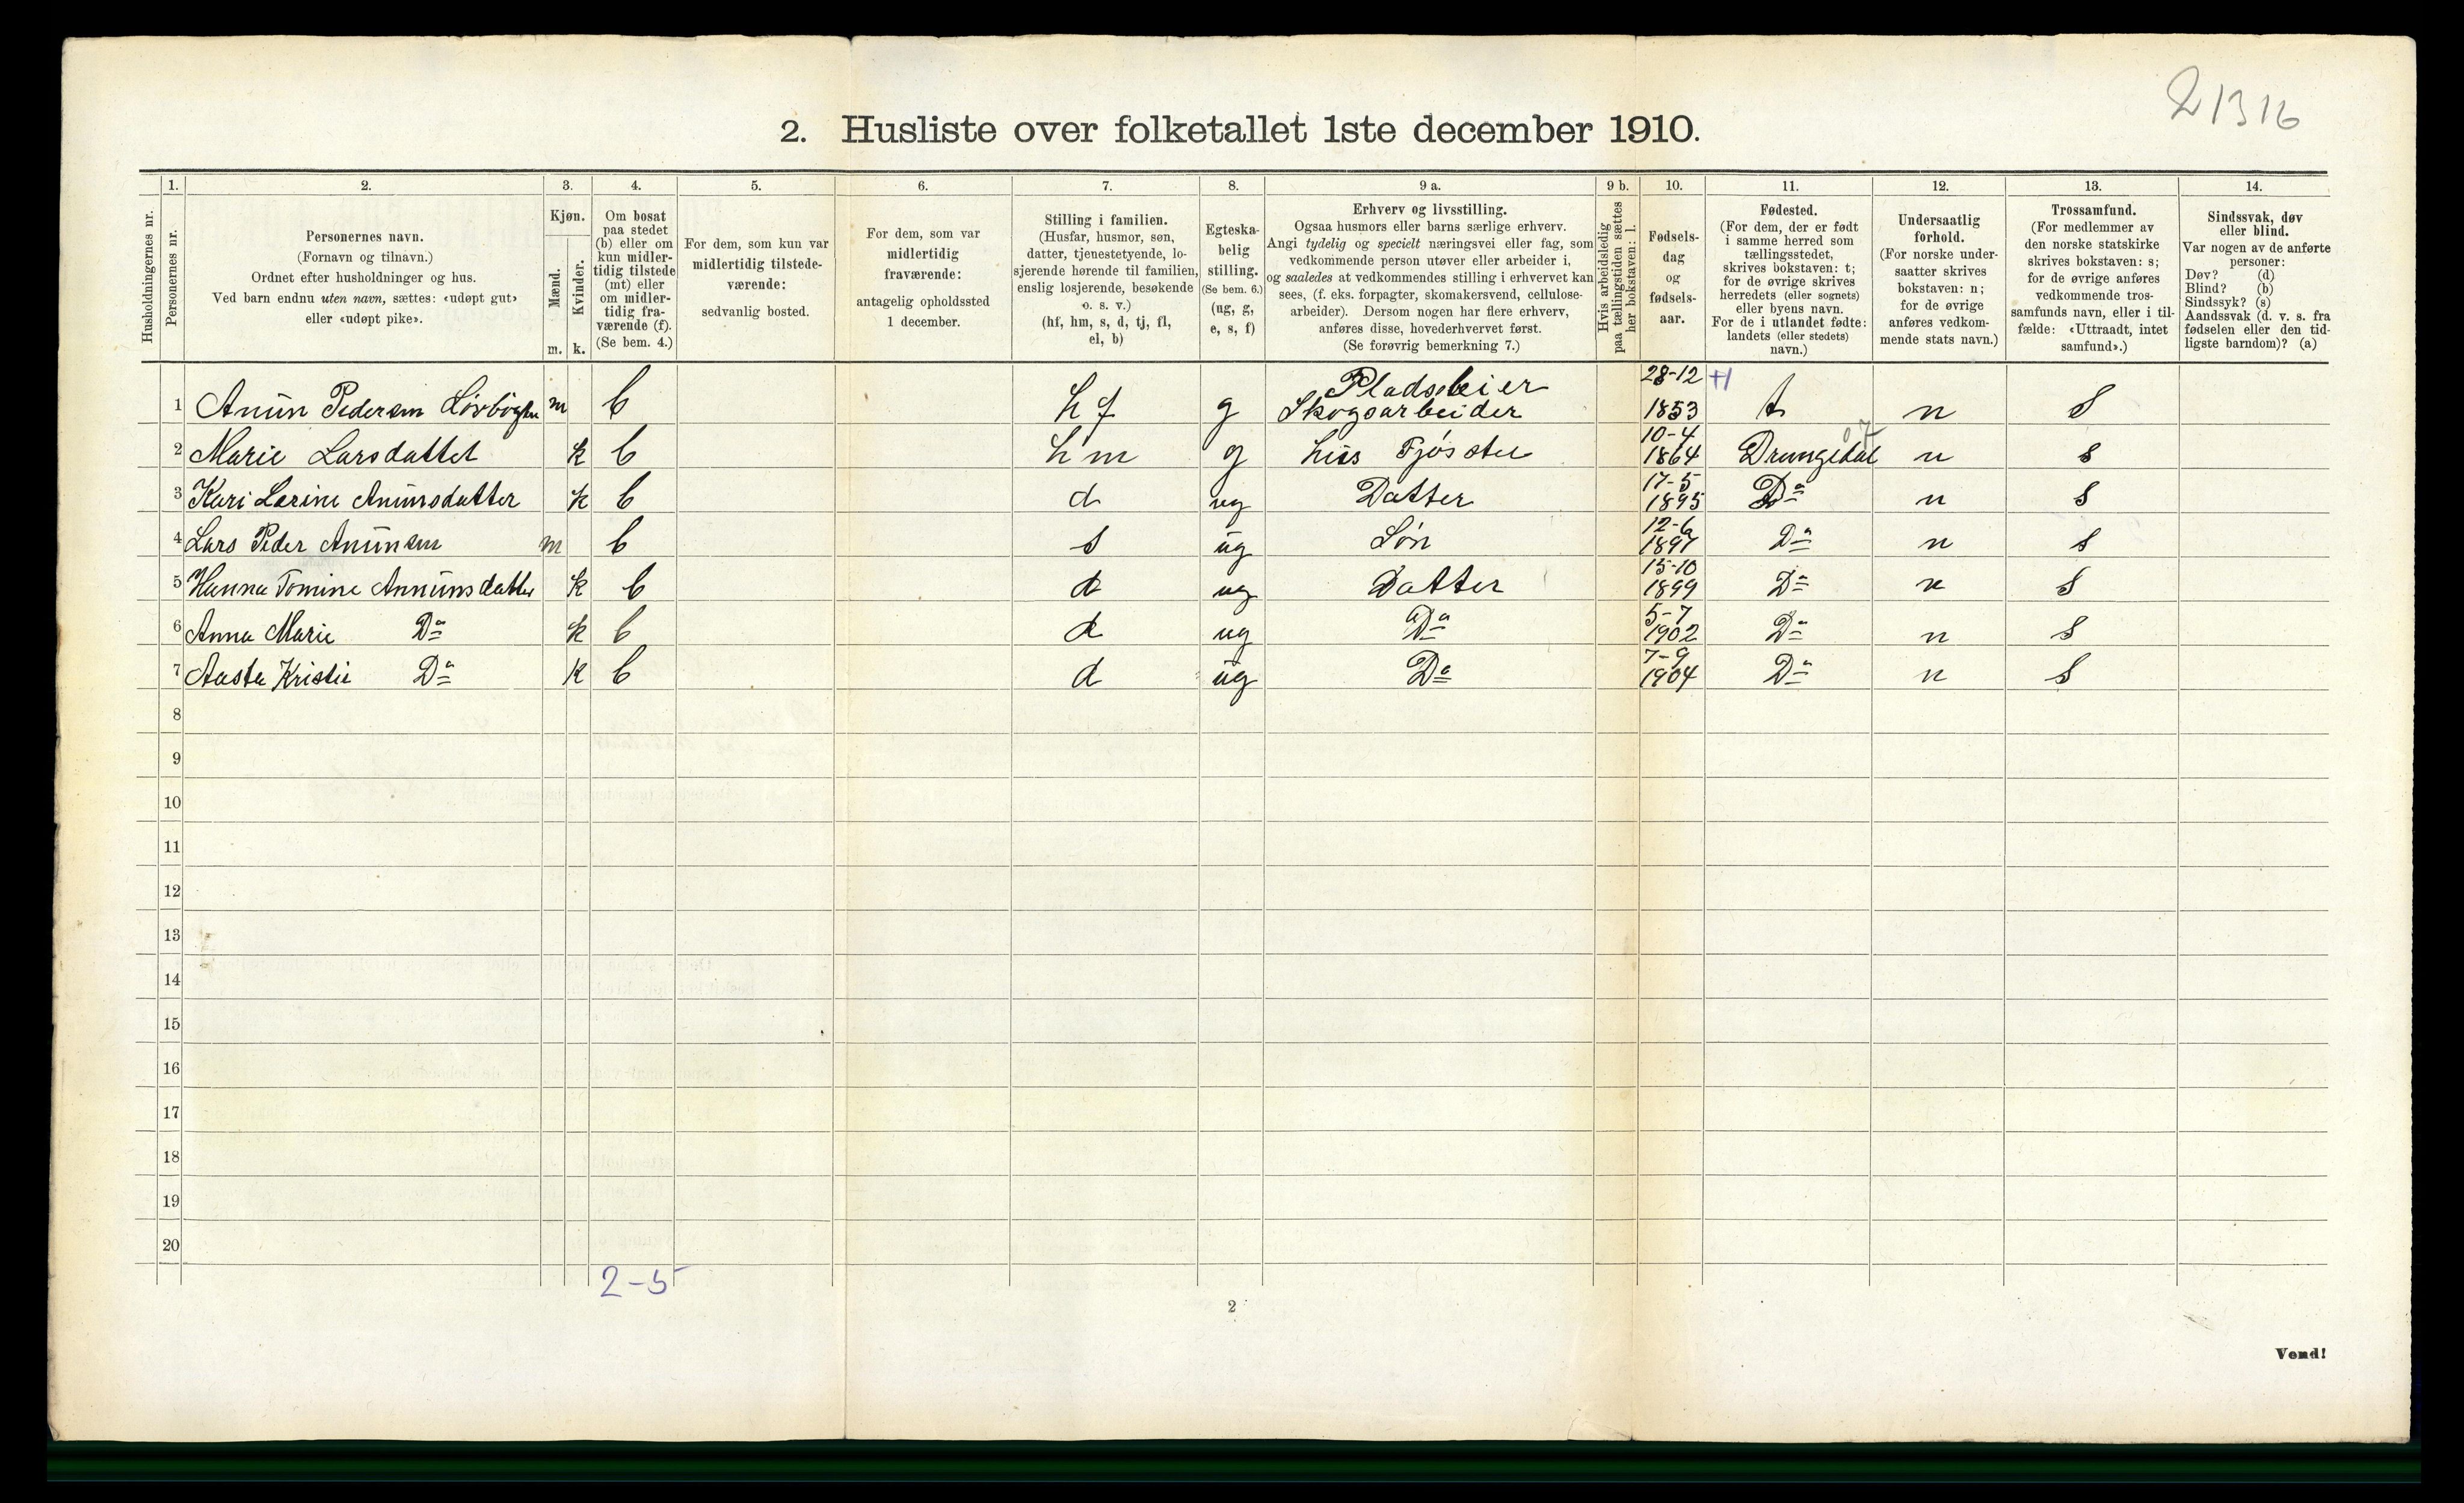 21316
2. Husliste over folketallet 1ste december 1910.
1. 2. 3. 4. 5. 6. 7. 8. 9 a. 9 b. 10. 11. 12. 13. 14.
Husholdningernes nr.
Personernes nr.
Personernes navn.
(Fornavn og tilnavn.)
Ordnet efter husholdninger og hus.
Ved barn endnu uten navn, sættes: «udøpt gut»
eller «udøpt pike».
Kjøn.
Mænd.
Kvinder.
m. k.
Om bosat
paa stedet
(b) eller om
kun midler-
tidig tilstede
(mt) eller
om midler-
tidig fra-
værende (f).
(Se bem. 4.)
For dem, som kun var
midlertidig tilstede-
værende:
sedvanlig bosted.
For dem, som var
midlertidig
fraværende:
antagelig opholdssted
1 december.
Stilling i familien.
(Husfar, husmor, søn,
datter, tjenestetyende, lo-
sjerende hørende til familien,
enslig losjerende, besøkende
o. s. v.)
(hf, hm, s, d, tj, fl,
el, b)
Egteska-
belig
stilling.
(Se bem. 6.)
(ug, g,
e, s, f)
Erhverv og livsstilling.
Ogsaa husmors eller barns særlige erhverv.
Angi tydelig og specielt næringsvei eller fag, som
vedkommende person utøver eller arbeider i,
og saaledes at vedkommendes stilling i erhvervet kan
sees, (f. eks. forpagter, skomakersvend, cellulose-
arbeider). Dersom nogen har flere erhverv,
anføres disse, hovederhvervet først.
(Se forøvrig bemerkning 7.)
Hvis arbeidsledig
paa tællingstiden sættes
her bokstaven: l.
Fødsels-
dag
og
fødsels-
aar.
Fødested.
(For dem, der er født
i samme herred som
tællingsstedet,
skrives bokstaven: t;
for de øvrige skrives
herredets (eller sognets)
eller byens navn.
For de i utlandet fødte:
landets (eller stedets)
navn.)
Undersaatlig
forhold.
(For norske under-
saatter skrives
bokstaven: n;
for de øvrige
anføres vedkom-
mende stats navn.)
Trossamfund.
(For medlemmer av
den norske statskirke
skrives bokstaven: s;
for de øvrige anføres
vedkommende tros-
samfunds navn, eller i til-
fælde: «Uttraadt, intet
samfund».)
Sindssvak, døv
eller blind.
Var nogen av de anførte
personer:
Døv? (d)
Blind? (b)
Sindssyk? (s)
Aandssvak (d. v. s. fra
fødselen eller den tid-
ligste barndom)? (a)
Pladseier 28-12
1 Anun Pedersen m b hf g Skogsarbeider 1853 t n s
10-4
2 Marie Larsdatter k b hm g hus Fjøsstel 1864 Drangedal n s
17-5
3 Kari Larine Anunsdatter k b d ug Datter 1895 Da n s
12-6
4 Lars Peder Anunsen m b s ug Søn 1897 Da n s
15-10
5 Hanna Tomine Annunsdatter k b d ug Datter 1899 Da n s
5-7
6 Anna Marie Da k b d ug Da 1902 Da n s
7-9
7 Aasta Kristie Da k b d ug Da 1904 Da n s
8
9
10
11
12
13
14
15
16
17
18
19
20
2-5
2
Vend!